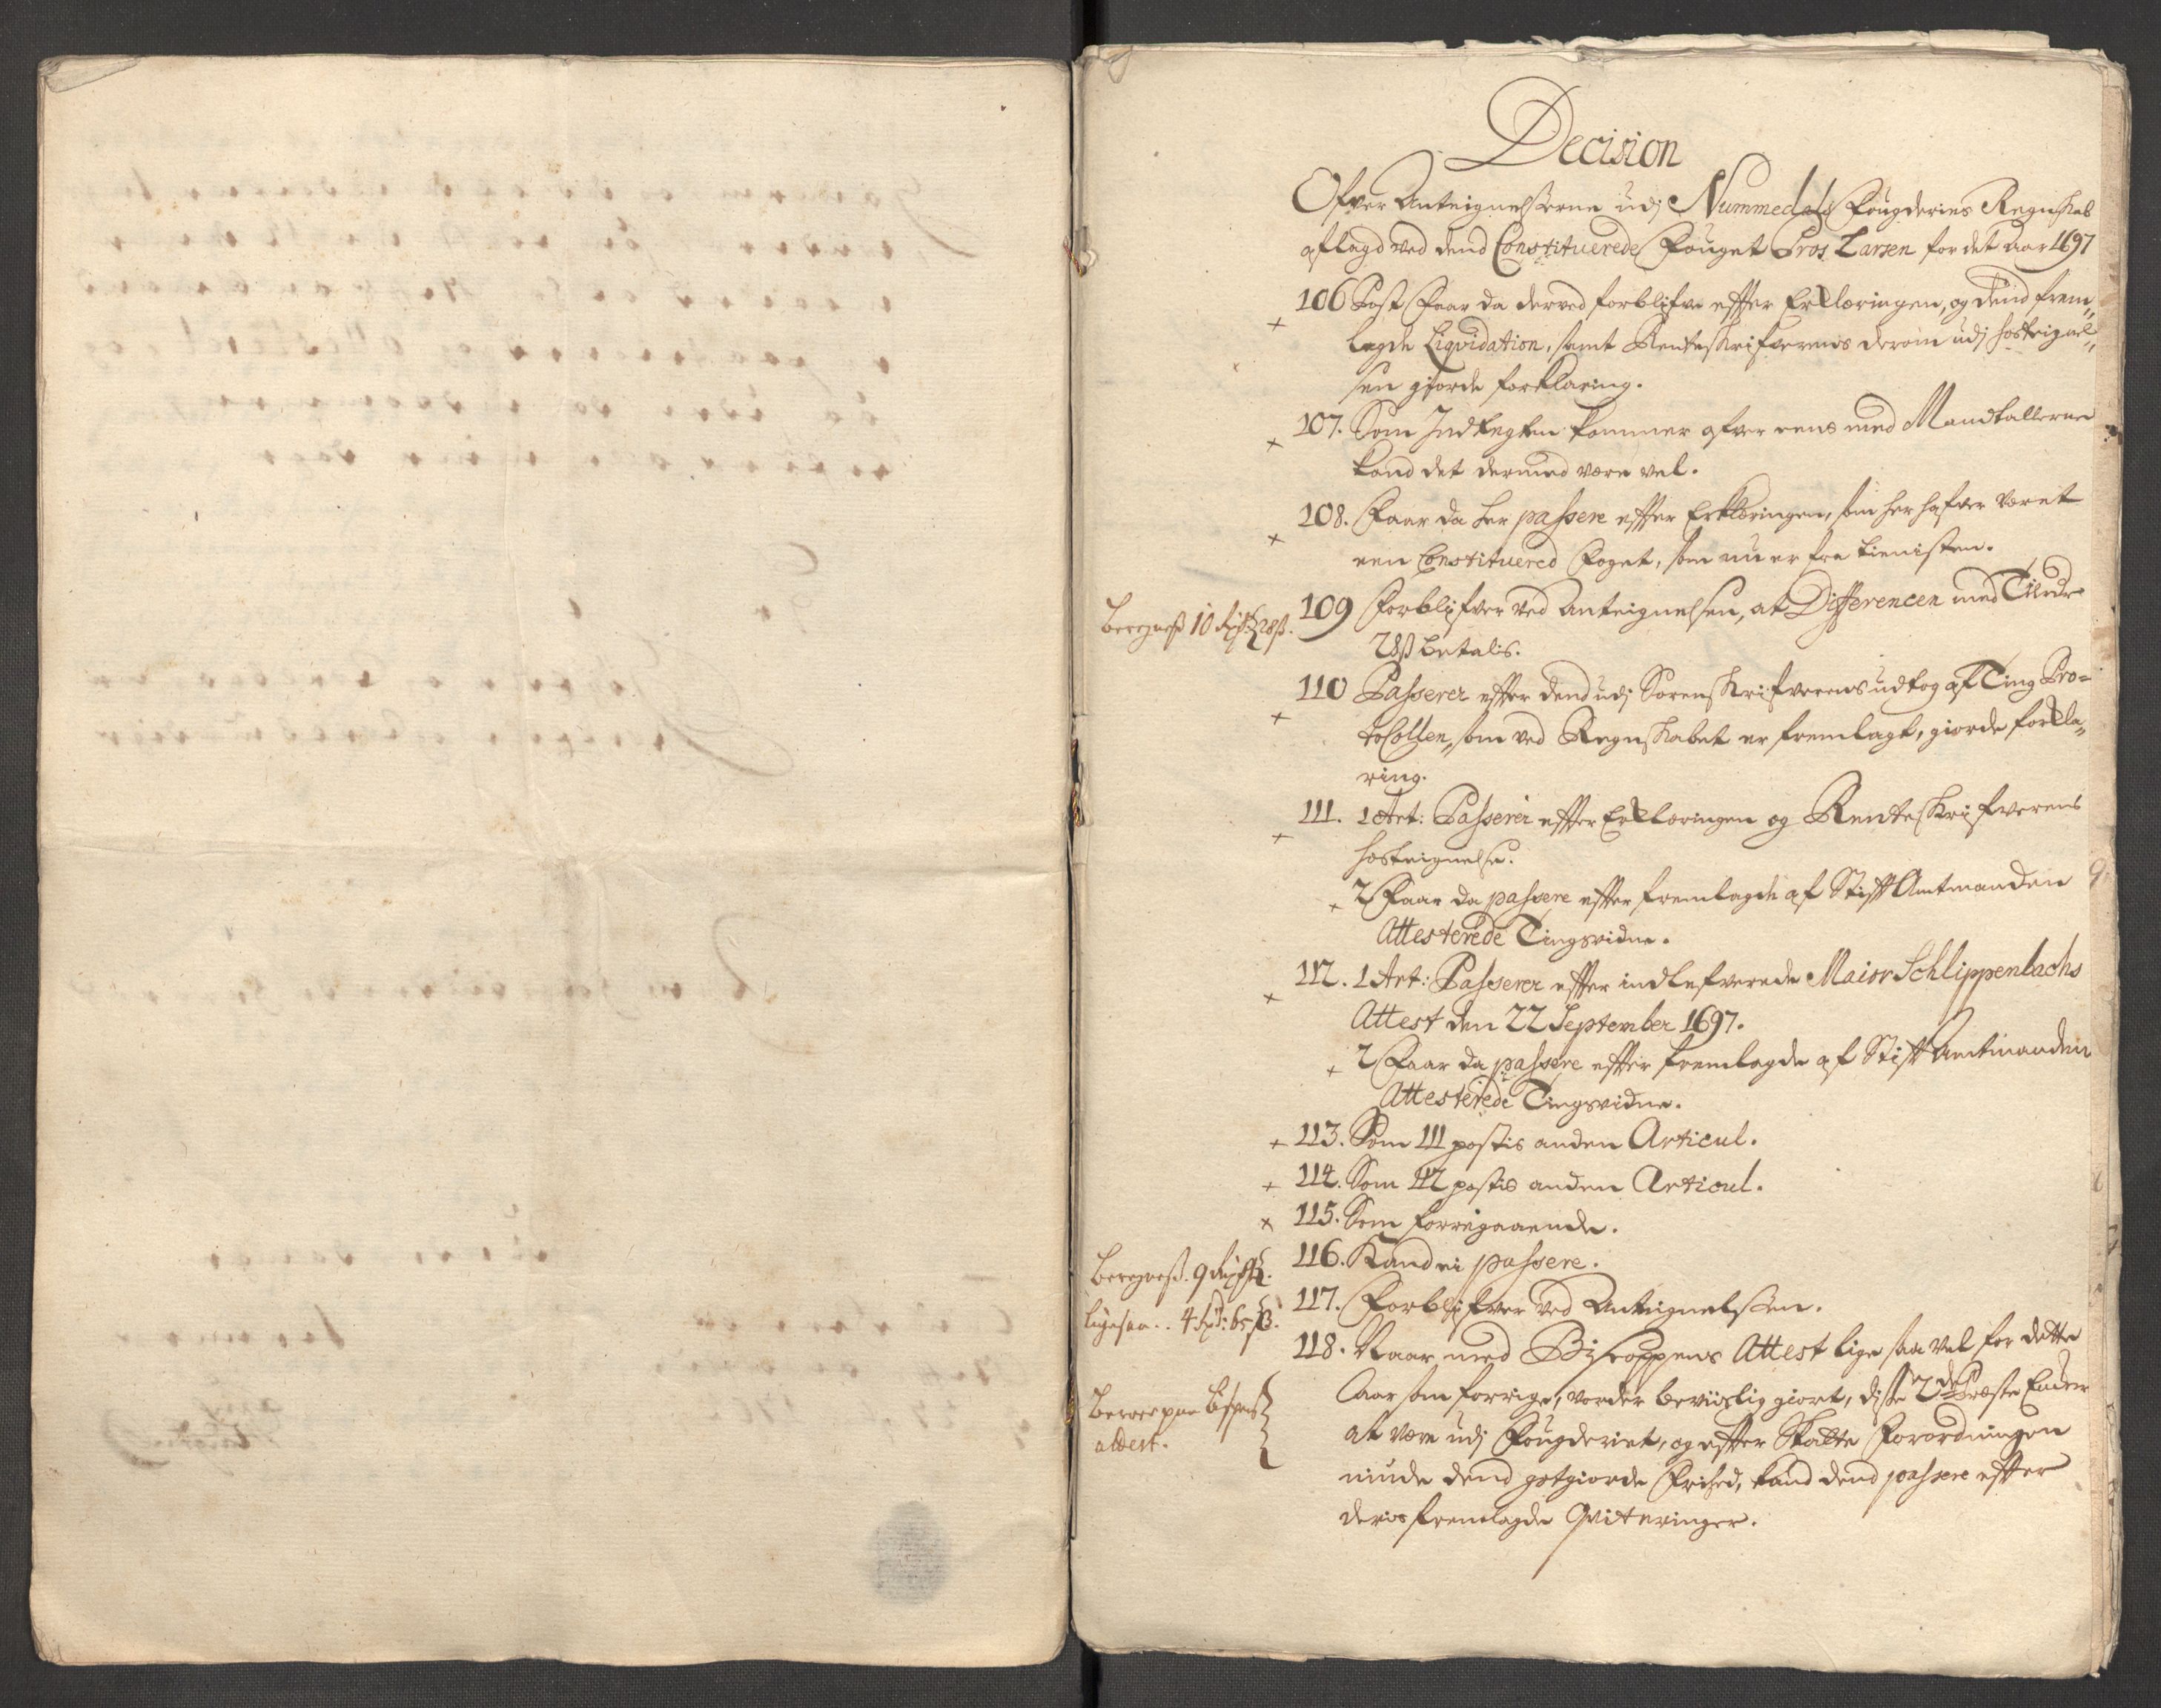 Decision
Ofver Anteignelserne udj Nummedals Fougderies Regnskab
aflagd ved dend Constituerede Fouget Pros Larsen for det aar 1697
+ 106 Post Faar da derved forblifve effter Erklæringen, og dend frem„
lagde Liqvidation, samt Renteskrifverens derom udj hosteignel„
sen giorde forklaring.
+ 107. Som Indtegten kommer ofver eens med Mandtallerne
kand det dermed være vel.
+ 108. Faar da her passere effter Erklæringen, som her hafver været
een Constituered Foget, som nu er fra tienisten.
Beregnes 10 28 ß.
109 Forblifver ved Anteignelsen, at Differencen med
28 ß betalis.
+ 110 Passerer effter dend udj Sorenskrifverens udtog af Ting Pro-
tocollen, som ved Regnskabet er fremlagt, giorde forkla„
ring.
+ 111. 1 Art: Passerer effter Erklæringen og Renteskrifverens
hosteignelse.
+ 2 Faar da passere effter fremlagde af Stifft Amtmanden
Attesterede Tingsvidne.
+ 112. 1 Art: Passerer effter indlefverede Maior Schlippenbachs
Attest den 22 September 1697.
+ 2 Faar da passere effter fremlagde af Stifft Amtmanden
Attesterede Tingsvidne.
+ 113. Som 111 postis anden Articul.
+ 114. Som 112 postis anden Articul.
x 115. Som forrigaaende.
Beregnes. 9
116. Kand ei passere.
ligesaa.. 4
117. Forblifver ved Anteignelsen.
118. Naar med Bischoppens Attest lige saa vel for dette
Aar som forrige, vorder beviislig giort, disse 2de Præste Encker
Beroer paa Bispens
attest.
at være udj Fougderiet, og effter Skatte Forordningen
niude dend gotgiorde Frihed, kand dend passere effter
deris fremlagde Qvitteringer.